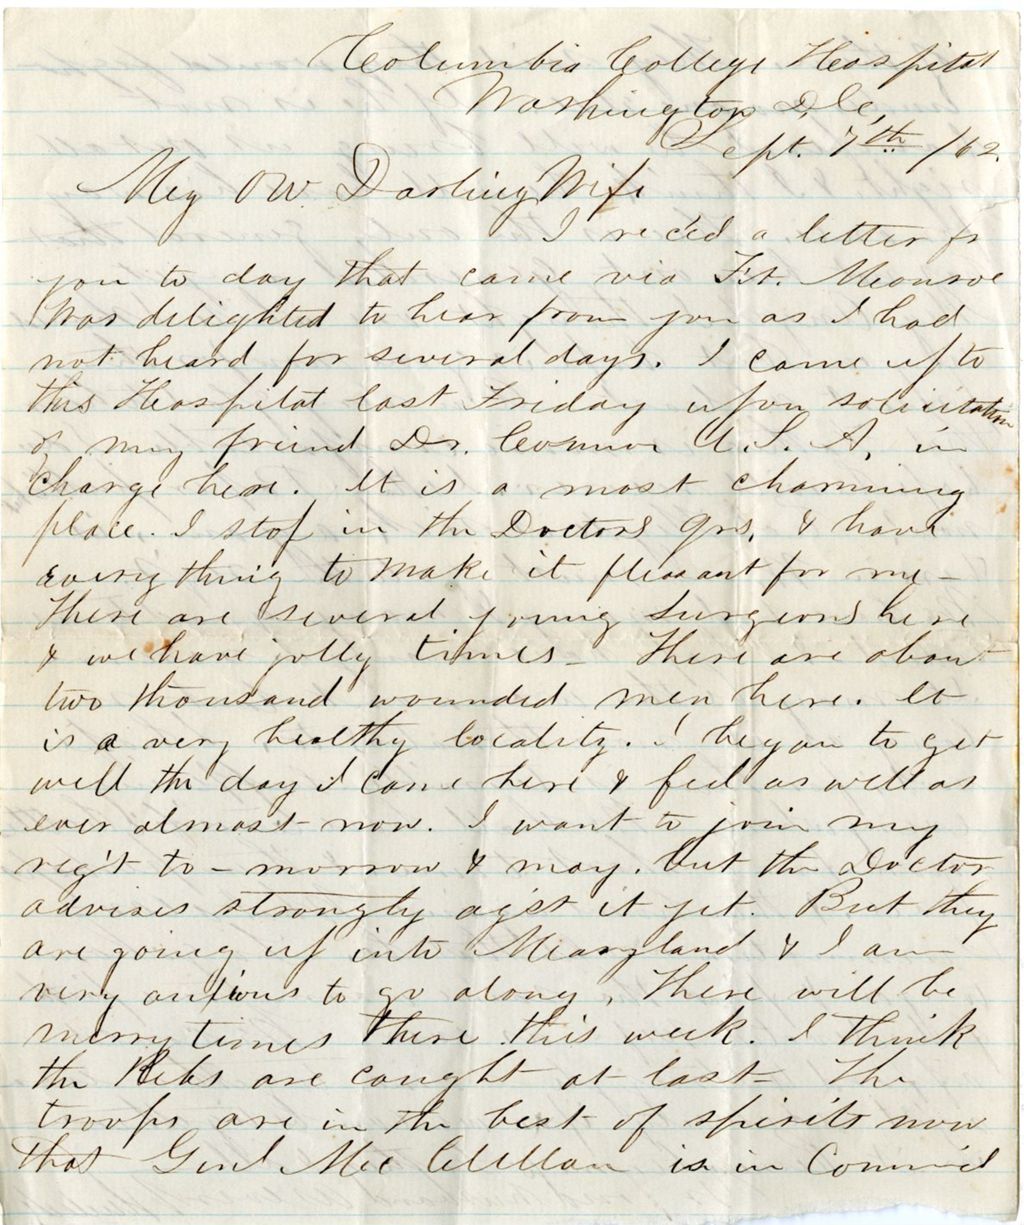 Columbia College Hospital
Washington D.C.
Sept. 7th /62.
My Own Darling Wife
I rec'ed a letter fr
you to day that came via Ft. Monroe
Was delighted to hear from you as I had
not heard for several days. I came up to
this Hospital last Friday upon solicitation
of my friend Dr. Connor U.S.A. in
charge here. It is a most charming
place. I stop in the Doctors qrs. & have
every thing to make it pleasant for me -
There are several young surgeons here
& we have jolly times - There are about
two thousand wounded men here. It
is a very healthy locality. I began to get
well the day I came here & feel as well as
ever almost now. I want to join my
reg't to-morrow & may. but the Doctor
advises strongly ag'st it yet. But they
are going up into Maryland & I am
very anxious to go along. There will be
merry times there this week. I think
the Rebs are caught at last - The
troops are in the best of spirits now
that Genl McClellan is in Comm'd